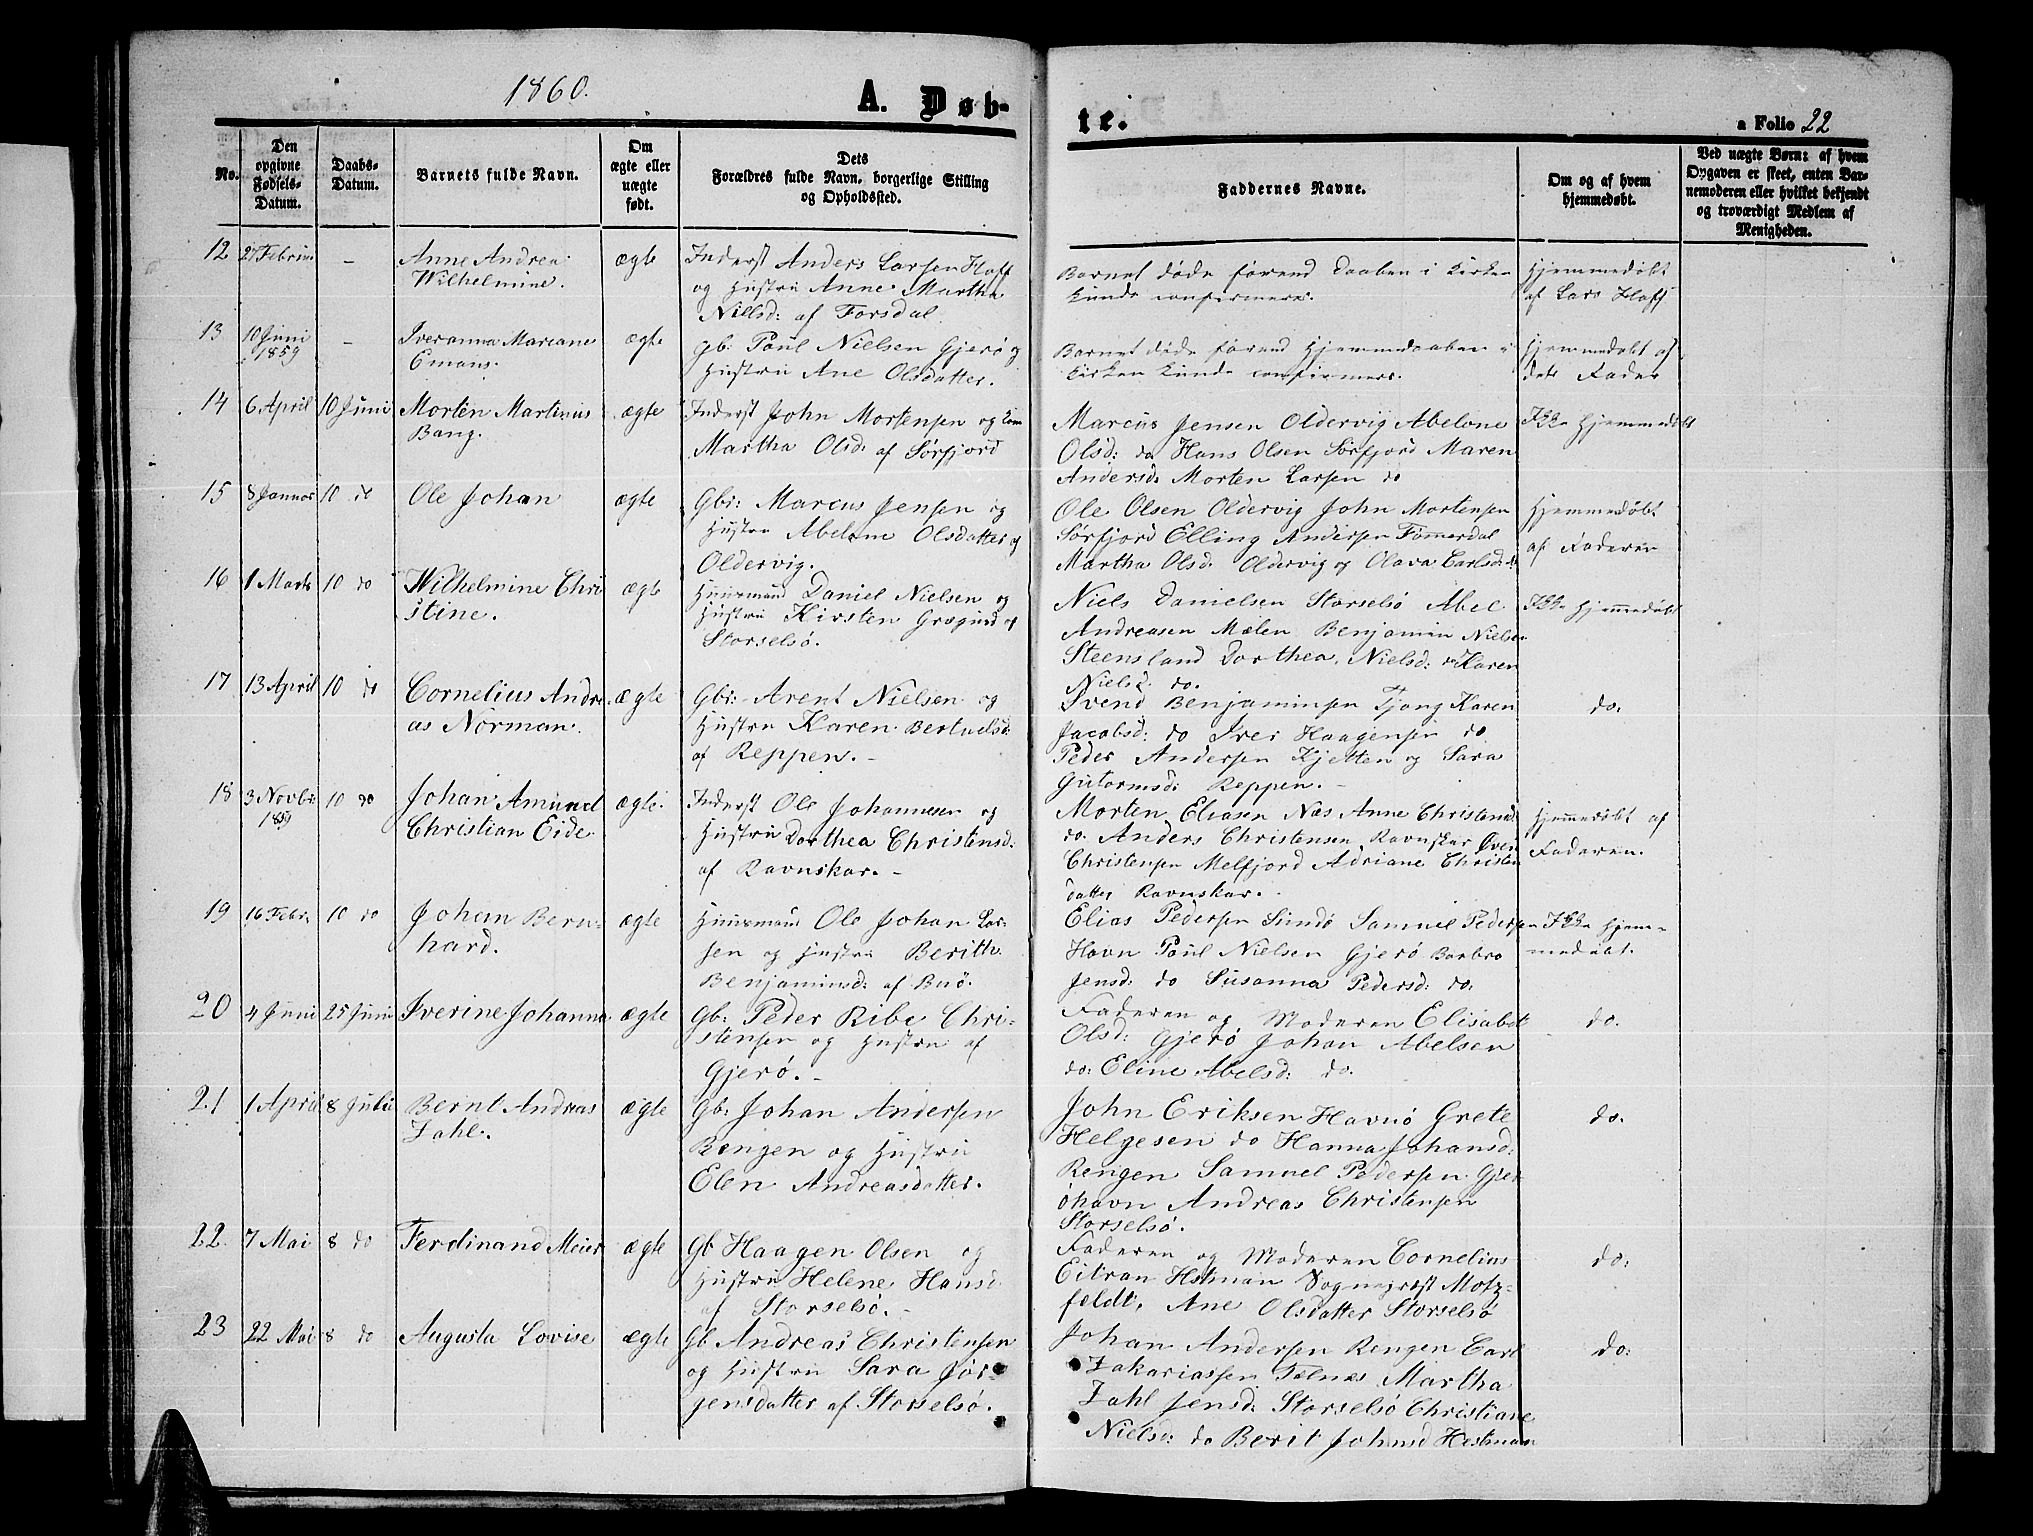 1860.
A. Døb-
te.
a Folio 22
No.
Den
opgivne
Fødsels-
Datum.
Daabs-
Datum.
Barnets fulde Navn.
Om
ægte eller
uægte
født.
Dets
Forældres fulde Navn, borgerlige Stilling
og Opholdssted.
Faddernes Navne.
Om og af hvem
hjemmedøbt.
Ved uægte Børn: af hvem
Opgaven er skeet, enten Bar-
nemoderen eller hvilket bekjendt
og troværdigt Medlem af
Menigheden.
12
27 Februar
-
Anne Andrea
Wilhelmine.
ægte
Inderst Anders Larsen Hoff
og Hustru Anne Martha
Nielsd: af Forsdal.
Barnet døde førend Daaben i Kirken
kunde confirmeres.
Hjemmedøbt
af Lars Hoff
13
10 Juni
1859
-
Iveranna Mariane
Emaus.
ægte
gb: Paul Nielsen Gjerø og
Hustru Ane Olsdatter.
Barnet døde førend Hjemmedaaben i
Kirken kunde confirmeres.
Hjemmedøbt af
dets Fader
14
6 April
10 Juni
Morten Martinus
Bang.
ægte
Inderst John Mortensen og Kone
Martha Olsd: af Sørfjord
Marcus Jensen Oldervig Abelone
Olsd: do Hans Olsen Sørfjord Maren
Andersd: Morten Larsen do
Ikke Hjemmedøbt
15
8 Januar
10 do
Ole Johan
ægte
Gbr: Marcus Jensen og
Hustru Abelone Olsdatter af
Oldervig.
Ole Olsen Oldervig John Mortensen
Sørfjord Elling Andersen Tømmerdal
Martha Olsd. Oldervig og Olava Carlsd: do
Hjemmedøbt
af Faderen
16
1 Marts
10 do
Wilhelmine Chri
stine.
ægte
Huusmand Daniel Nielsen og
Hustru Kirsten Gregusd af
Storselsø.
Niels Danielsen Storselsø Abel
Andreasen Mælen Benjamin Nielsen
Steensland Dorthea Nielsd: do Karen
Nielsd: do.
Ikke Hjemmedøbt
17
13 April
10 do
Cornelius Andre
as Norman.
ægte
Gbr: Arent Nielsen og
Hustru Karen Bertuelsd:
af Reppen. -
Svend Benjaminsen Tjong Karen
Jacobsd: do Iver Haagensen do
Peder Andersen Kjetten og Sara
Gutormsd: Reppen. -
do.
18
3 Novbr
1859
10 do
Johan Amund
Christian Eide
ægte.
Inderst Ole Johannesen og
Hustru Dorthea Christensd:
af Ravnskar. -
Morten Eliasen Næs Anne Christensd:
do. Anders Christensen Ravnskar Even
Christensen Melfjord Adriane Christen
datter Ravnskar. -
Hjemmedøbt af
Faderen.
19
16 Febr.
10 do
Johan Bern-
hard.
ægte
Huusmand Ole Johan Lar-
sen og Hustru Berith
Benjaminsd: af Buø.
Elias Pedersen Sundø Samuel Pedersen
Havn Paul Nielsen Gjerø Barbro
Jensd: do Susanna Pedersd: do.
Ikke Hjem-
medøbt.
20
4 Juni
25 Juni
Iverine Johanna
ægte
Gb: Peder Ribe Chri-
stensen og Hustru af
Gjerø. -
Faderen og Moderen Elisabet
Olsd: Gjerø Johan Abelsen
do: Eline Abelsd: do.
do.
21
1 April
8 Julii
Bernt Andreas
Zahl.
ægte
Gb: Johan Andersen
Rengen og Hustru
Elen Andreasdatter.
John Eriksen Havnø Grete
Helgesen do Hanna Johansd:
Rengen Samuel Pedersen Gjer
øhavn Andreas Christensen
Storselsø.
do.
22.
7 Mai
8 do
Ferdinand Meier
ægte
Gb Haagen Olsen og
Hustru Helene Hansd
af Storselsø. -
Faderen og Moderen Cornelius
Eitran Hstman Sognepræst Motz-
feldt, Ane Olsdatter Storselsø
do:
23
22 Mai
8 do
Augusta Lovise
ægte
Gb Andreas Christensen
og Hustru Sara Jør-
gensdatter af Storselsø.
Johan Andersen Rengen Carl
Zakariassen Telnæs Martha
Zahl Jensd: Storselsø Christiane
Nielsd: do Berit Johnsd Hestman
do: